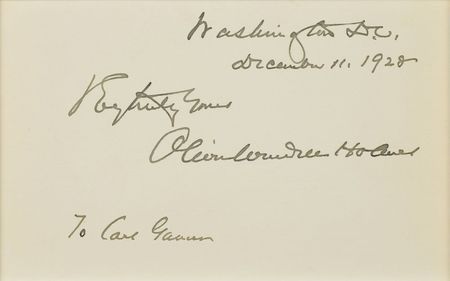 Washington D.C.
December 11. 1928
Very truly Yours
Oliver Wendell Holmes
To Carl